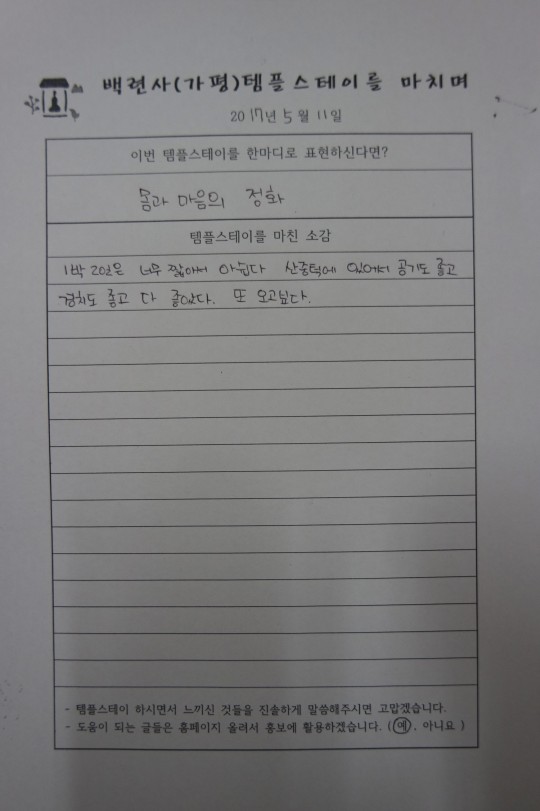 백련사(가평)템플스테이를 마치며
2017년 5월 11일
이번 템플스테이를 한마디로 표현하신다면?
몸과 마음의 정화
템플스테이를 마친 소감
1박 2일은 너무 짧아서 아쉽다 산중턱에 있어서 공기도 좋고
경치도 좋고 다 좋았다. 또 오고싶다.
- 템플스테이 하시면서 느끼신 것들을 진솔하게 말씀해주시면 고맙겠습니다.
- 도움이 되는 글들은 홈페이지 올려서 홍보에 활용하겠습니다. (예, 아니요 )